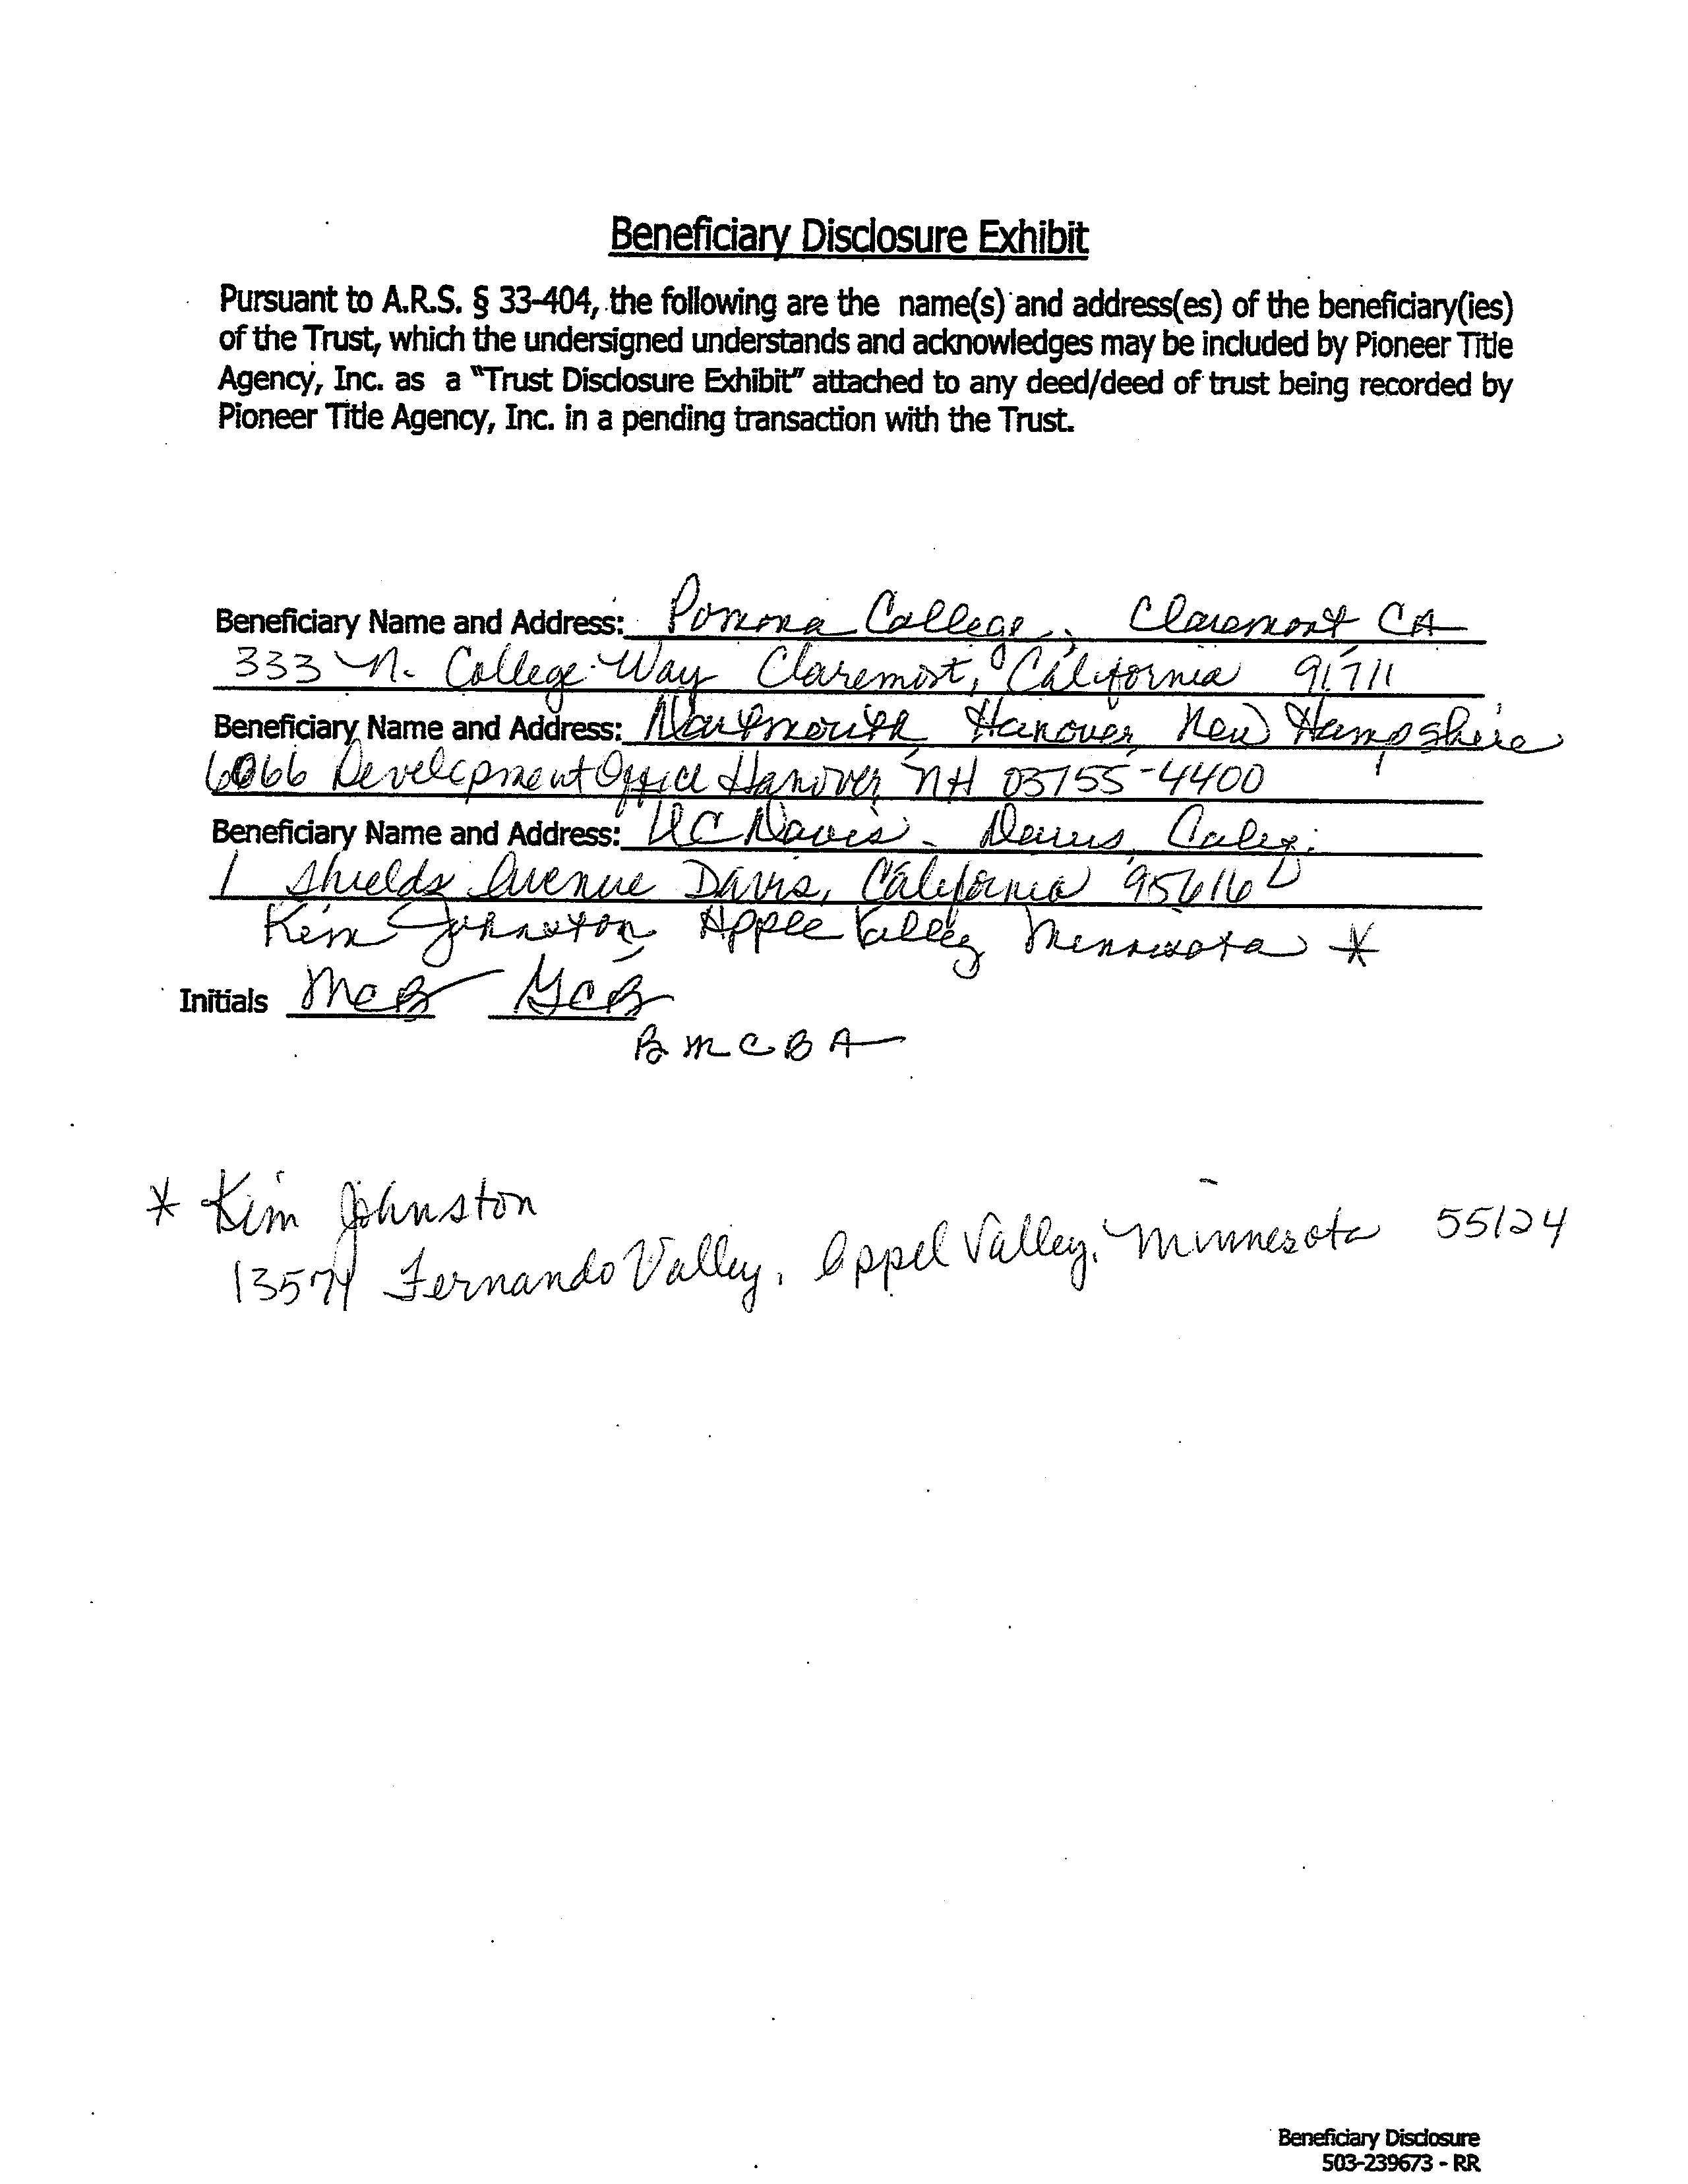 Beneficiary Disclosure Exhibit
Pursuant to A.R.S. § 33-404, the following are the name(s) and address(es) of the beneficiary(ies)
of the Trust, which the undersigned understands and acknowledges may be included by Pioneer Title
Agency, Inc. as a "Trust Disclosure Exhibit" attached to any deed/deed of trust being recorded by
Pioneer Title Agency, Inc. in a pending transaction with the Trust.
Beneficiary Name and Address: Pomona College, Claremont CA
333 N. College Way Claremont, California 91711
Beneficiary Name and Address: Dartmouth, Hanover, New Hampshire
6066 Development Office Hanover, NH 03755-4400
Beneficiary Name and Address: UC Davis - Davis, Calif.
1 Shields Avenue Davis, California 95616
Kim Johnston, Apple Valley Minnesota *
Initials McB GCB
BMCBA
* Kim Johnston
13574 Fernando Valley, Appel Valley, Minnesota 55124
Beneficiary Disclosure
503-239673 - RR